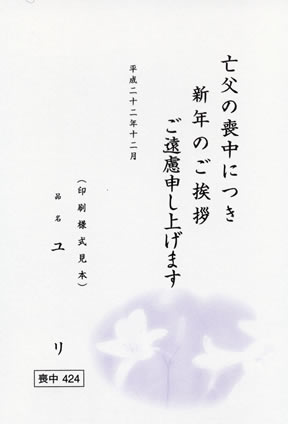 亡父の喪中につき
新年のご挨拶
ご遠慮申し上げます
平成二十二年十二月
(印刷様式見本)
品名 ユリ
喪中 424